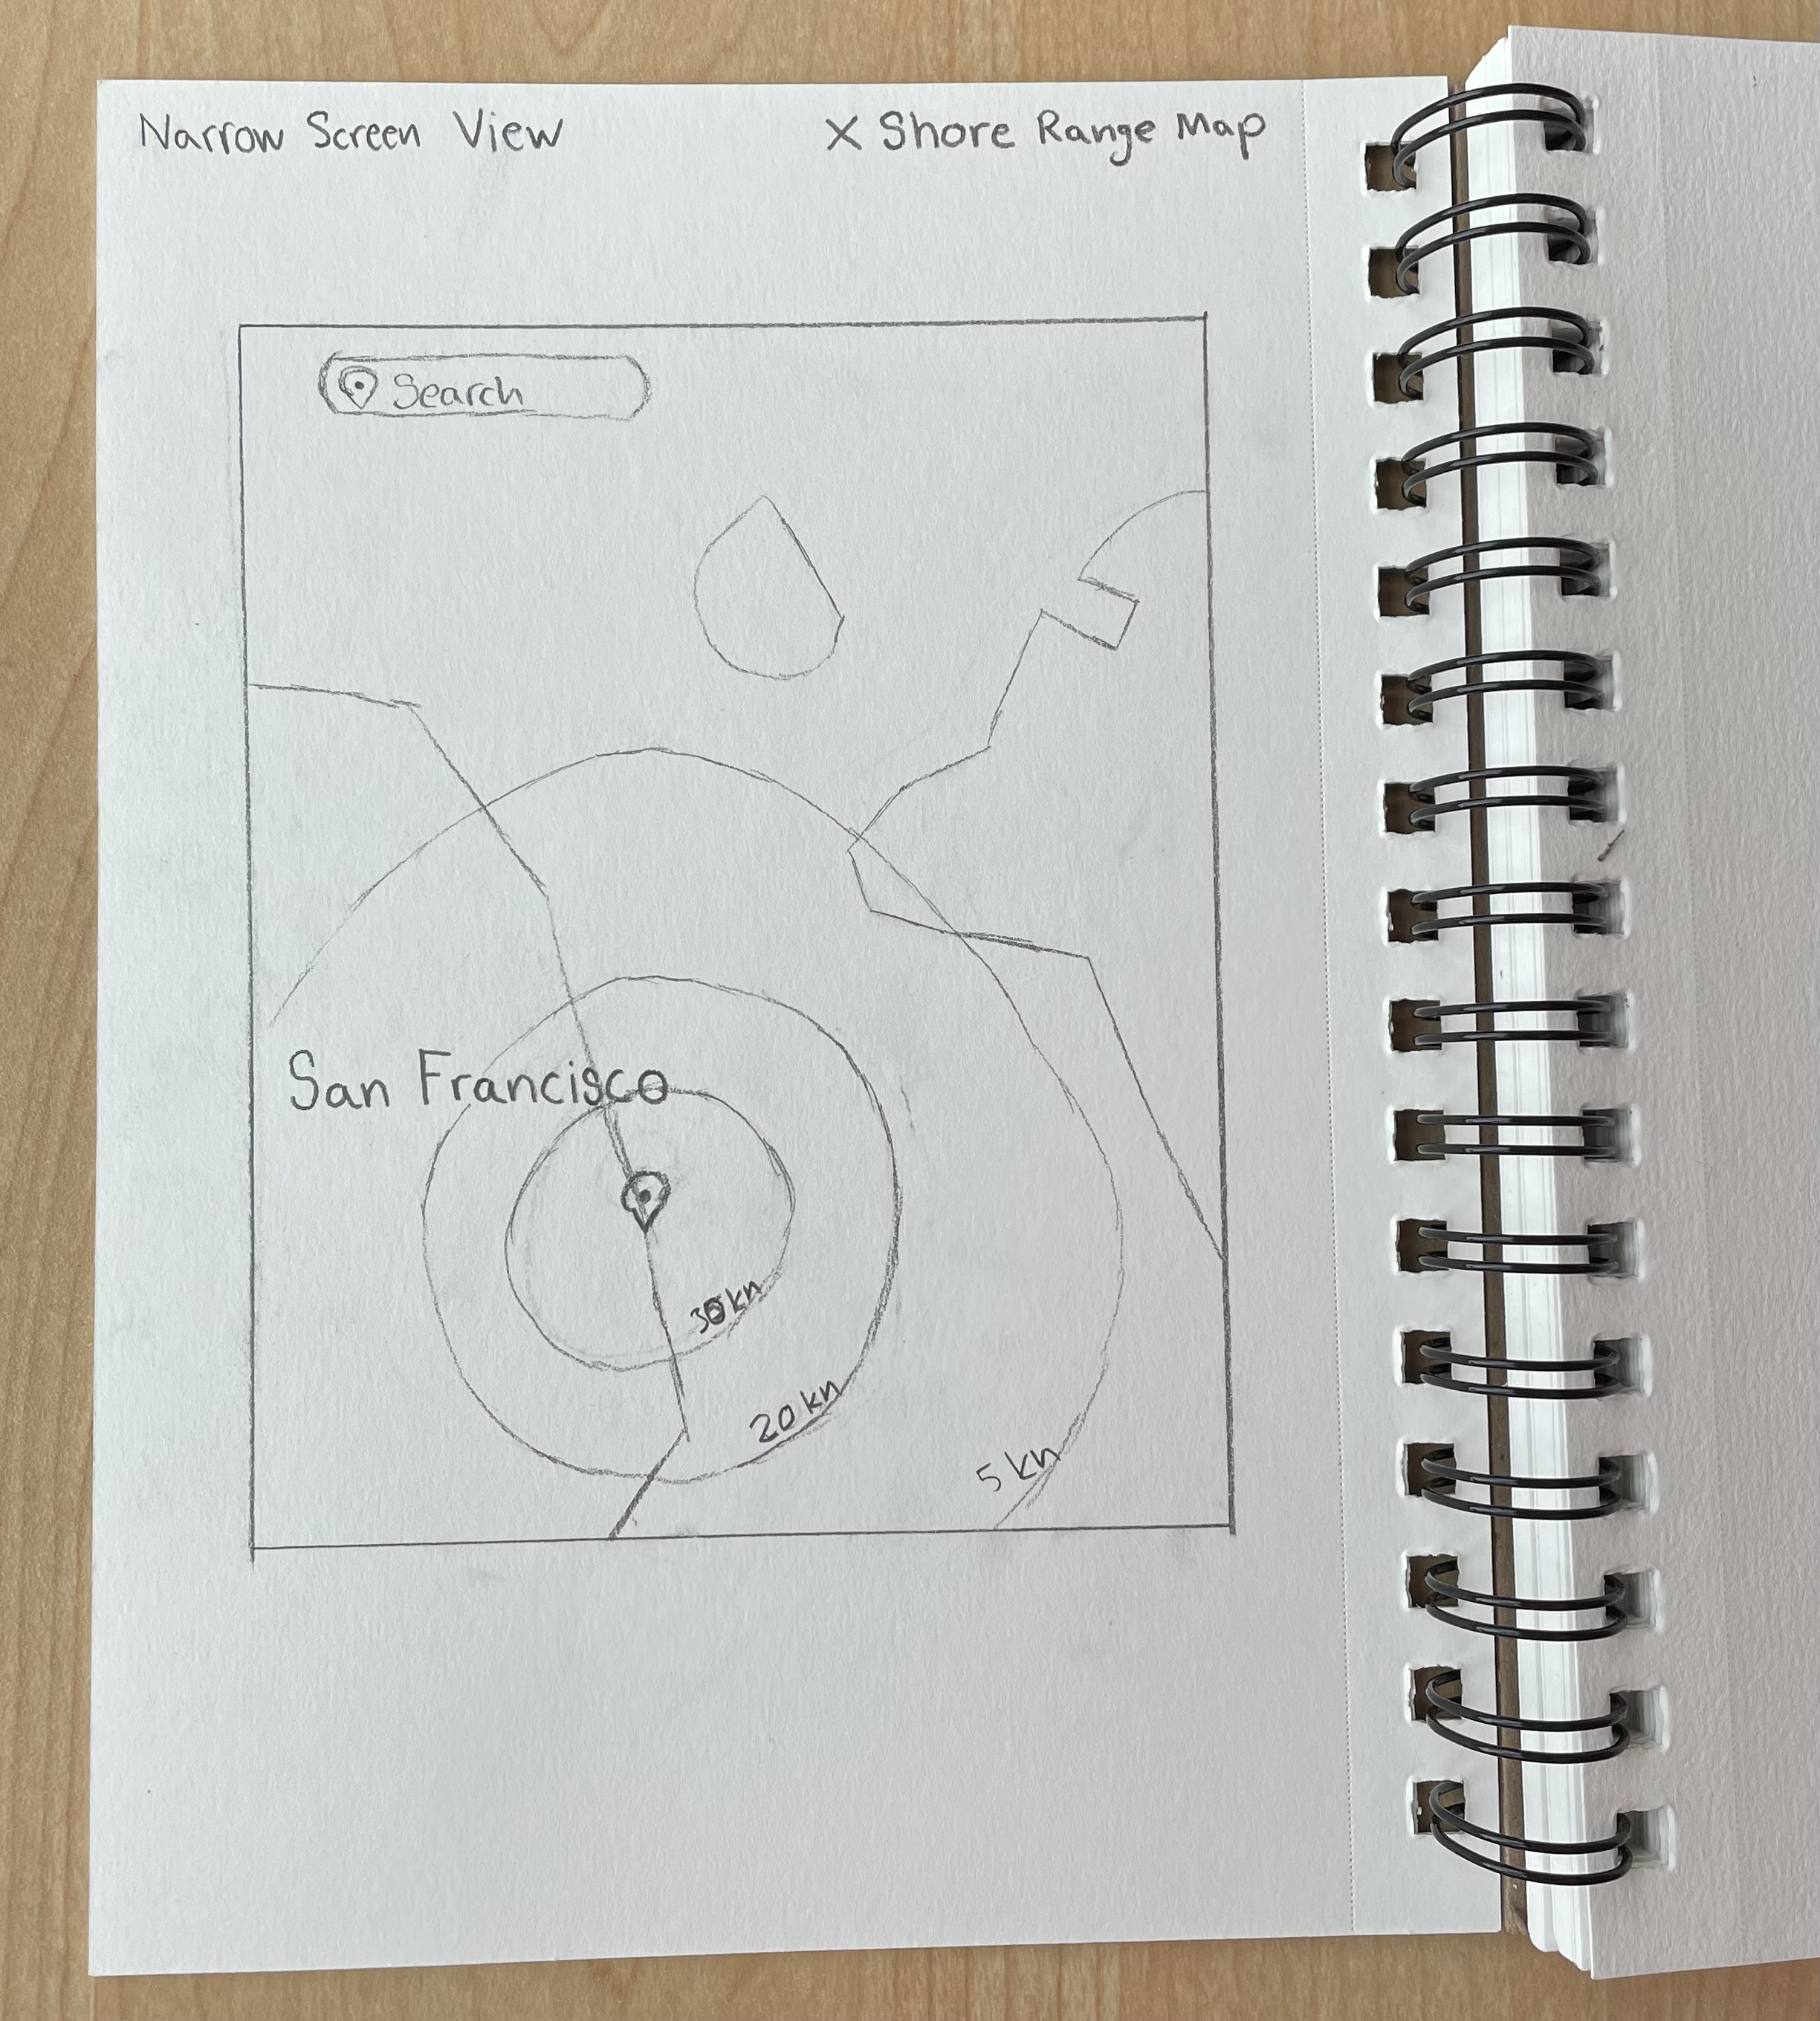 Narrow Screen View
X Shore Range Map
Search
San Francisco
30 kn
20 kn
5 kn